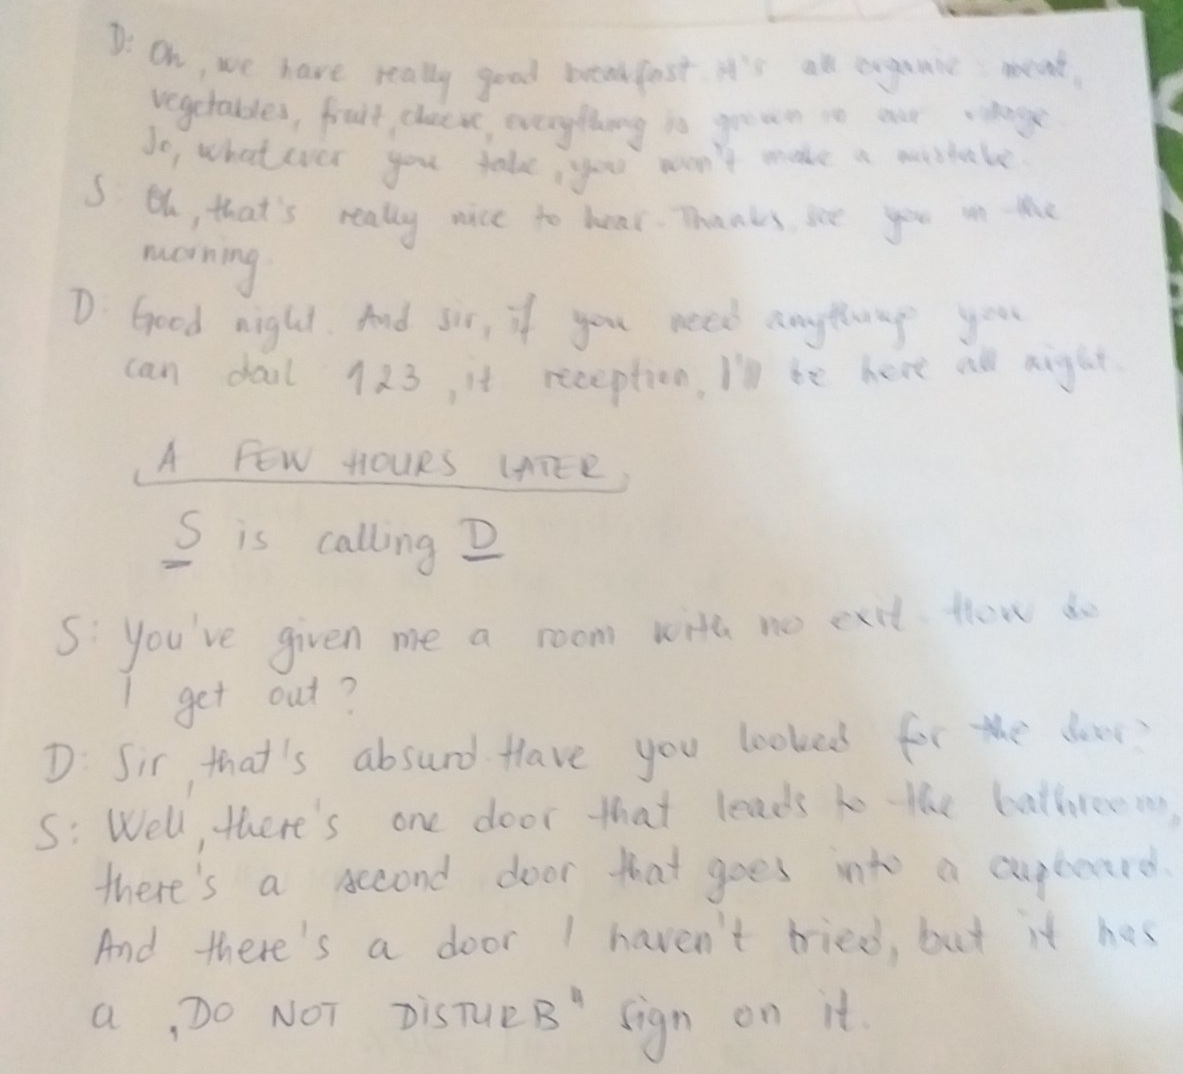 D: Oh, we have really good breakfast. It's all organic: meat,
vegetables, fruit, cheese, everything is grown in our village.
So, whatever you take, you won't make a mistake.
S: Oh, that's really nice to hear. Thanks, see you in the
morning.
D: Good night. And sir, if you need anything you
can dail 123, it reception, I'll be here all night.
A FEW HOURS LATER
S is calling D
S: You've given me a room with no exit. How do
I get out?
D: Sir, that's absurd. Have you looked for the door?
S: Well, there's one door that leads to the bathroom,
there's a second door that goes into a cupboard.
And there's a door I haven't tried, but it has
a „DO NOT DISTURB" sign on it.